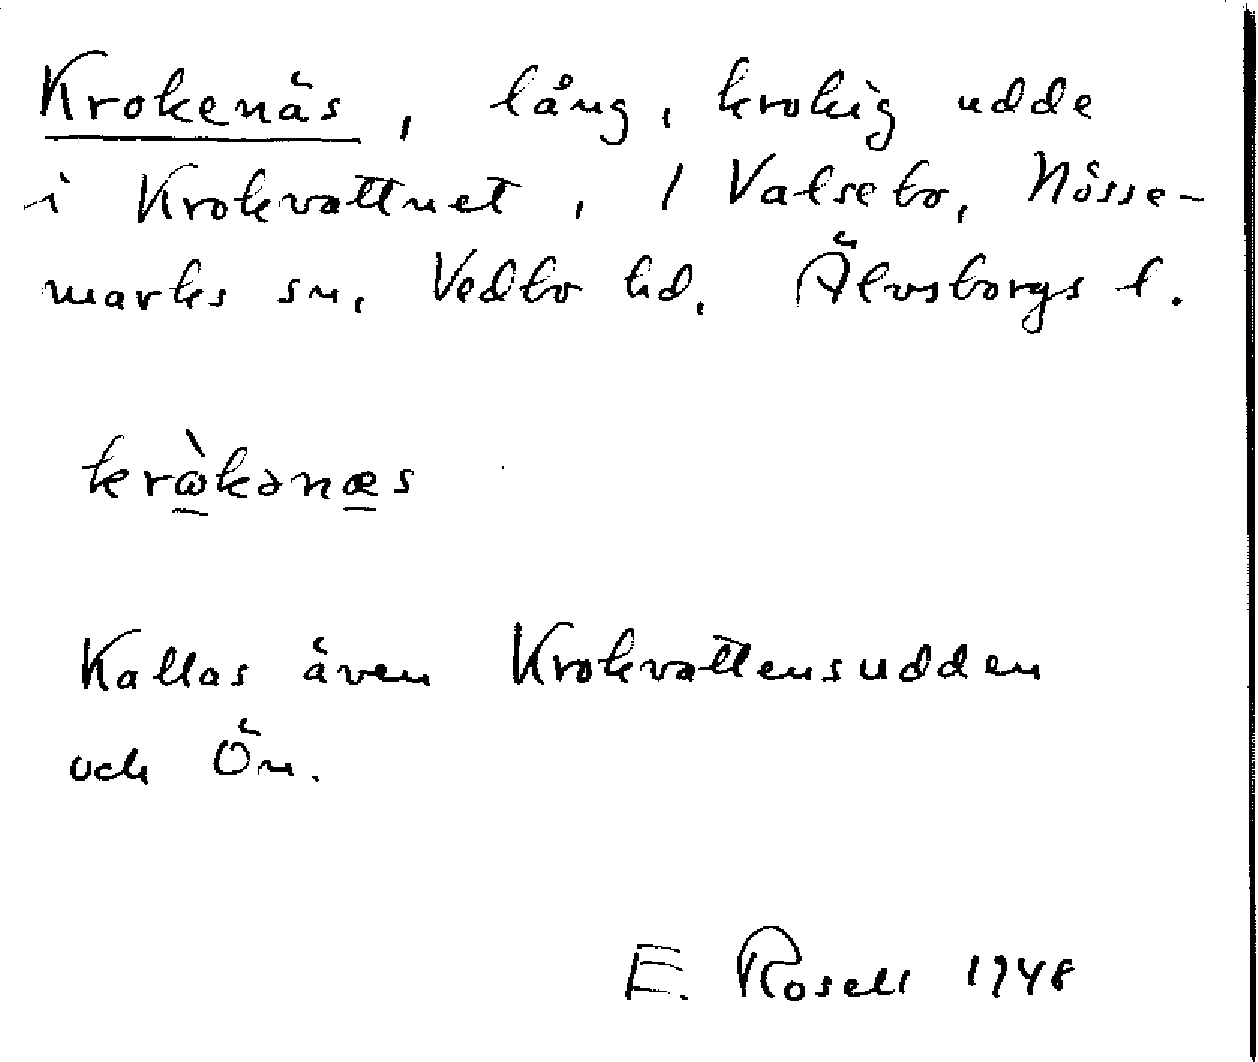 Krokenäs, lång, krokig udde
i Krokvattnet, 1 Valsebo, Nösse-
marks sn, Vedbo hd, Älvsborgs l.
krὼkənæs
Kallas även Krokvattensudden
och Ön.
E. Rosell 1948